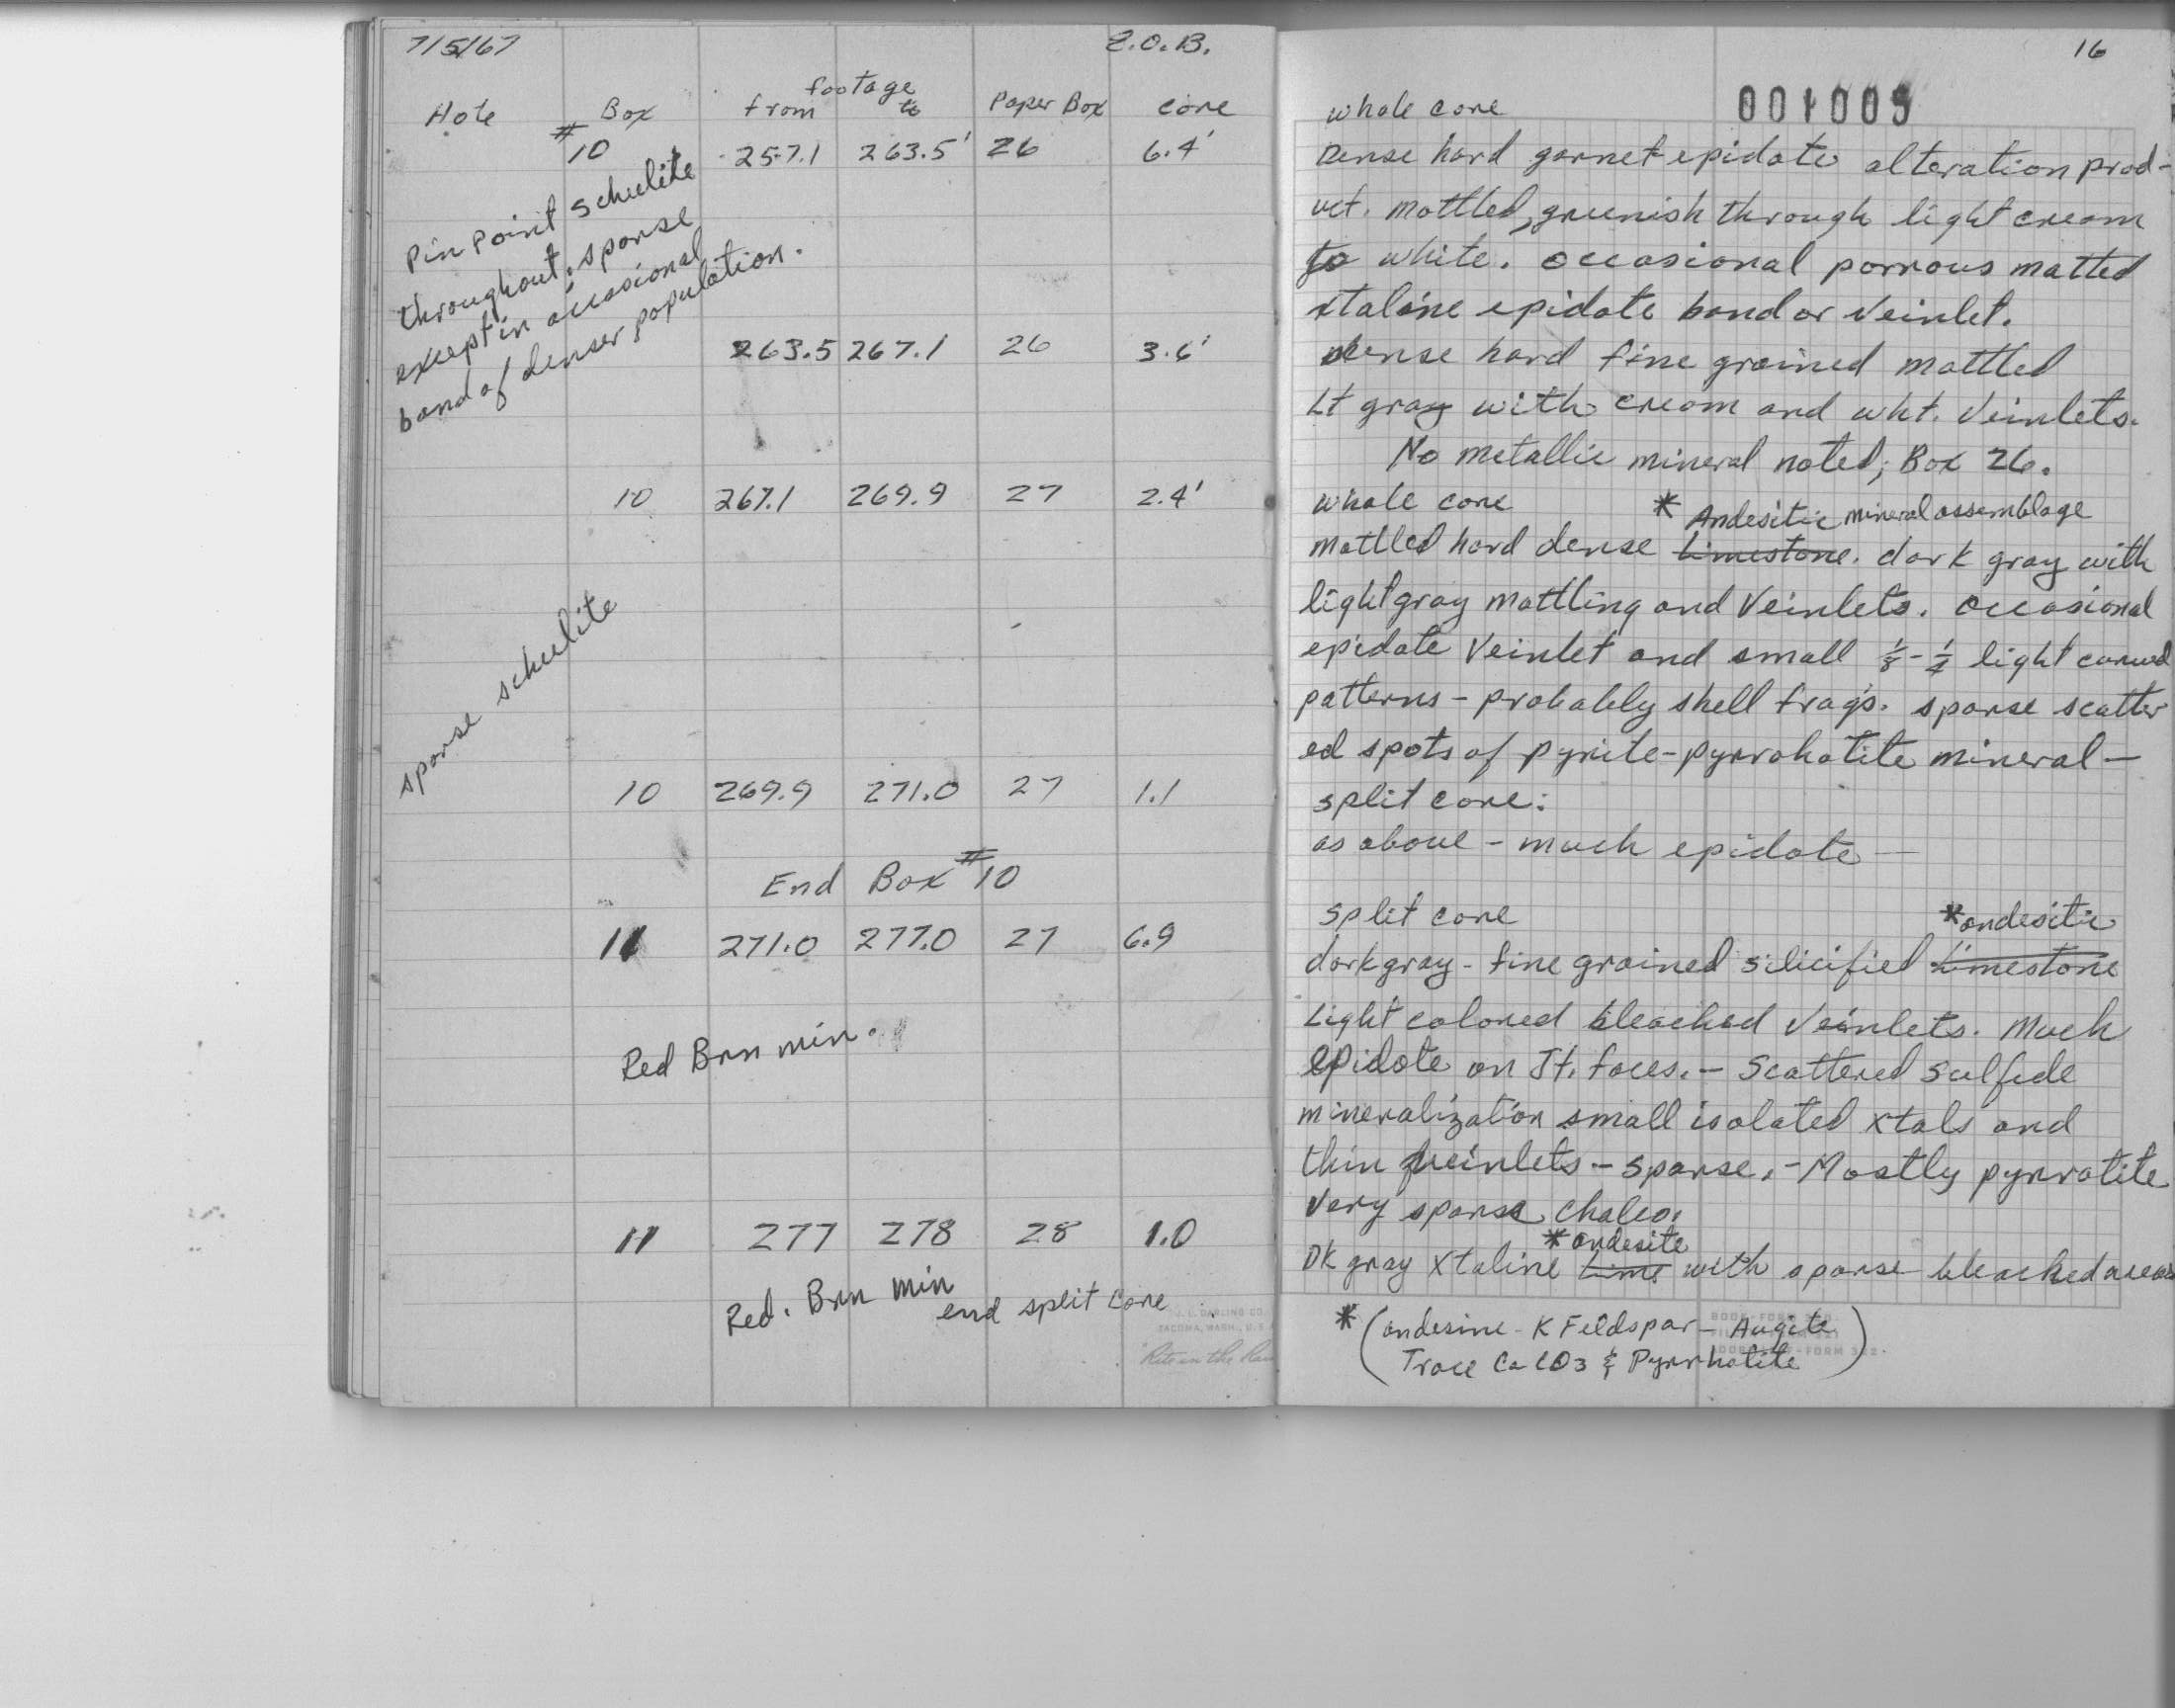 7/5/67 E.O.B.
footage
Hole Box from to Paper Box core
# 10 257.1 263.5' 26 6.4'
Pin Point scheelite
throughout, sparse
except in occasional
band of denser population.
263.5 267.1 26 3.6'
10 267.1 269.9 27 2.4'
sparse scheelite
10 269.9 271.0 27 1.1
End Box #10
11 271.0 277.0 27 6.9
Red Brn min.
11 277 278 28 1.0
Red. Brn min
end split core
J. L. DARLING CO.
TACOMA, WASH., U.S.
"Rite in the Rain
16
001009
whole core
Dense hard garnet epidote alteration prod-
uct. Mottled, greenish through light cream
to white. occasional porrous matted
xtaline epidote band or veinlet.
dense hard fine grained mottled
Lt gray with cream and wht. Veinlets.
No metallic mineral noted; Box 26.
whole core
* Andesitic mineral assemblage
mottled hard dense Limestone. dark gray with
light gray mottling and Veinlets. occasional
epidote Veinlet and small 1/8 - 1/4 light curved
patterns - probably shell frags. sparse scatter
ed spots of pyrite-pyrrohotite mineral —
split core:
as above - much epidote —
split core
* andesitic
dark gray - fine grained silicified Limestone
Light colored bleached Veinlets. Much
epidote on Jt. faces. - Scattered sulfide
mineralization small isolated xtals and
thin veinlets - sparse. - Mostly pyrrotite
Very sparse chalco.
* andesite
DK gray xtaline Lime with sparse bleached areas
* (andesine - K Feldspar - Augite
Trace CaCO3 & Pyrrhotite)